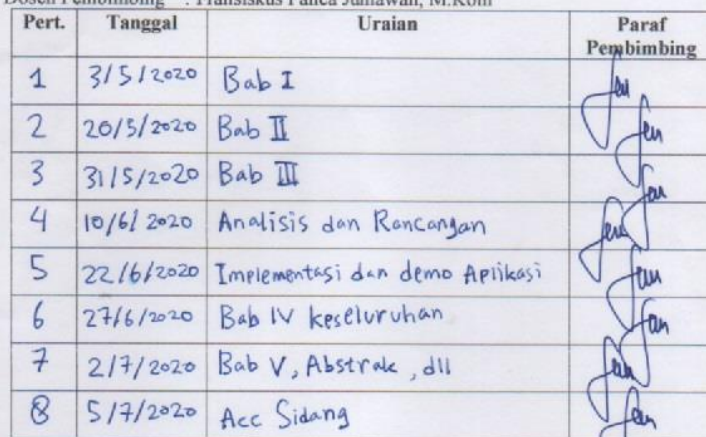 Dosen Pembimbing : Fransiskus Panca Juniawan, M.Kom
Pert. Tanggal Uraian Paraf Pembimbing
1 3/5/2020 Bab I
2 20/5/2020 Bab II
3 31/5/2020 Bab III
4 10/6/2020 Analisis dan Rancangan
5 22/6/2020 Implementasi dan demo Aplikasi
6 27/6/2020 Bab IV keseluruhan
7 2/7/2020 Bab V, Abstrak, dll
8 5/7/2020 Acc Sidang